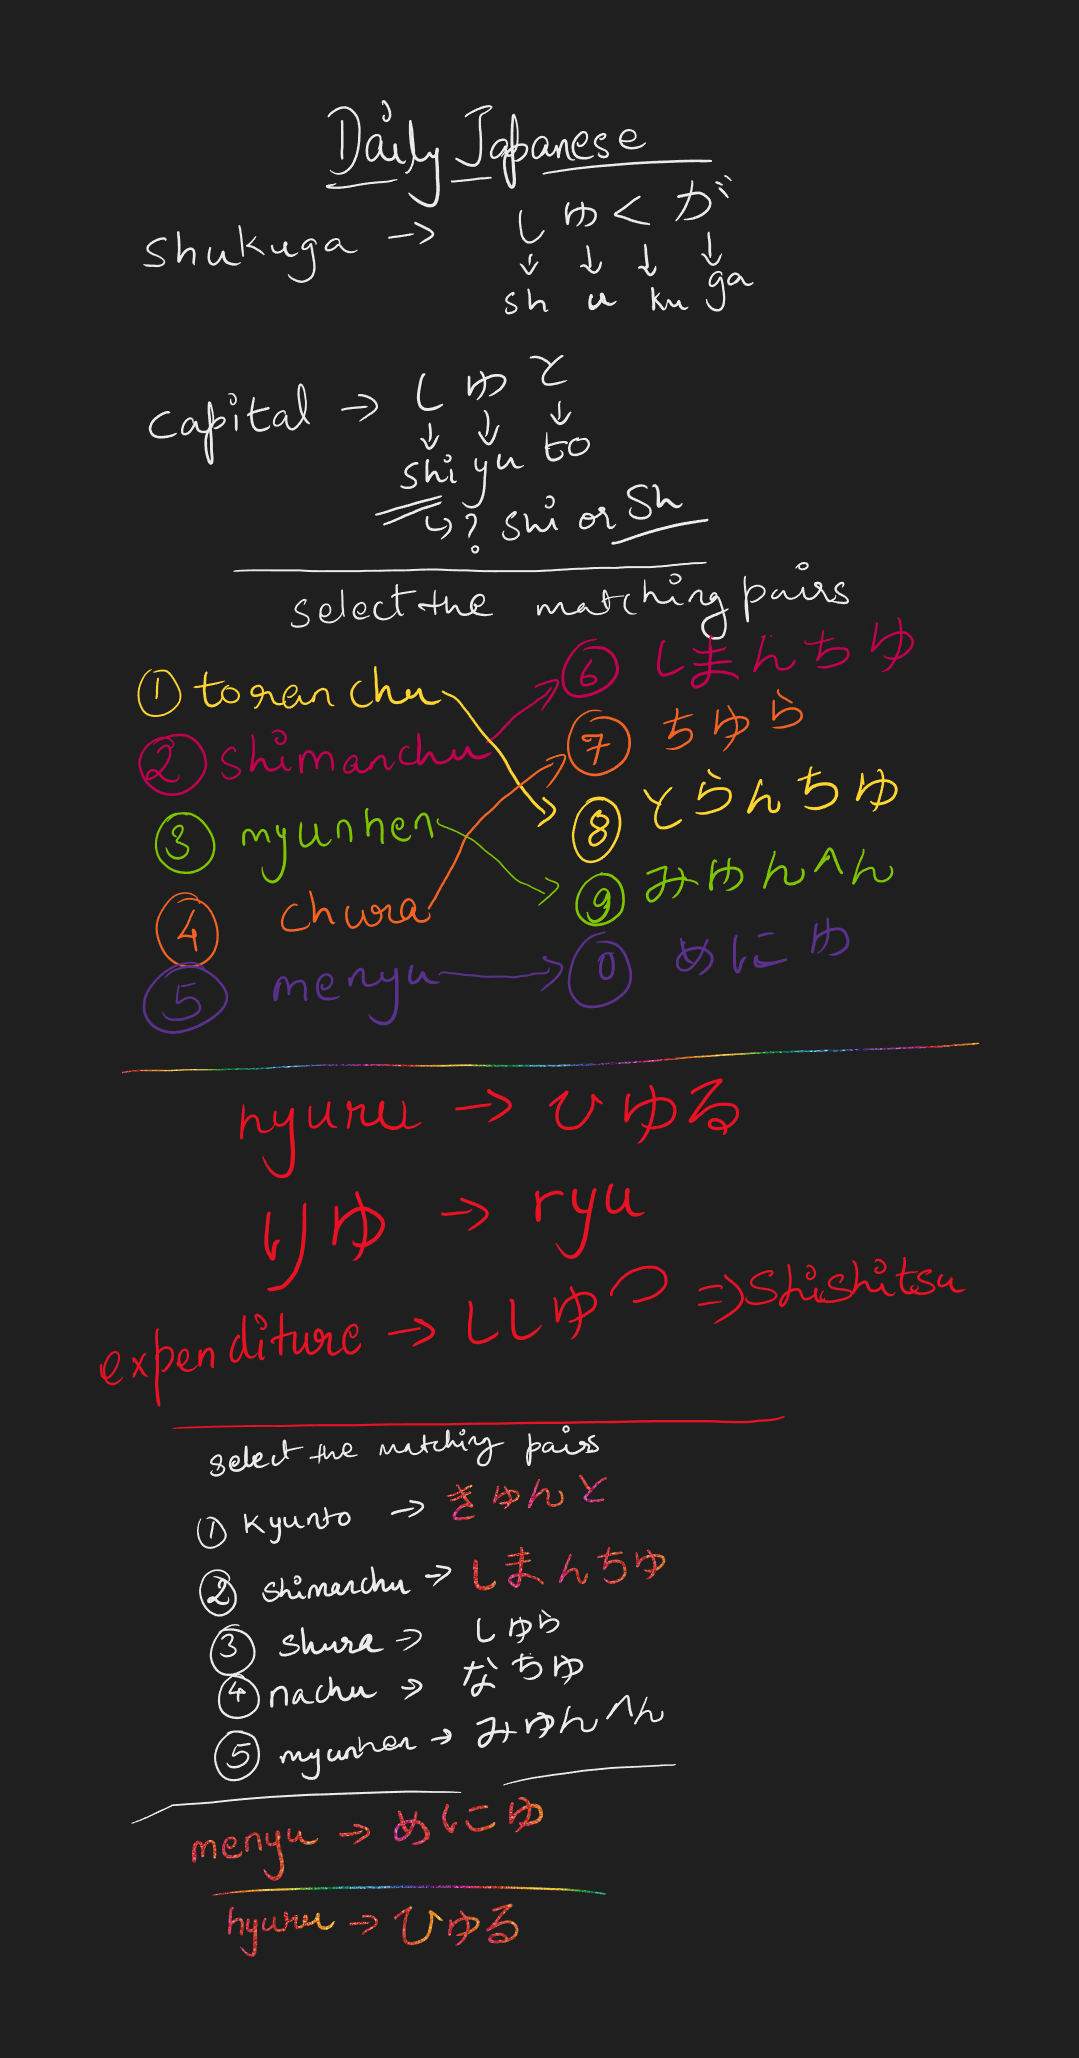 Daily Japanese
Shukuga → しゅくが
↓ ↓ ↓ ↓
sh u ku ga
Capital → しゅと
↓ ↓ ↓
shi yu to
↳ ? shi or sh
select the matching pairs
① toranchu
⑥ しまんちゅ
② shimanchu
⑦ ちゅら
③ myunhen
⑧ とらんちゅ
④ chura
⑨ みゅんへん
⑤ menyu
⓪ めにゅ
hyuru → ひゅる
りゅ → ryu
expenditure → ししゅつ ⇒ Shishitsu
select the matching pairs
① Kyunto → きゅんと
② shimanchu → しまんちゅ
③ shura → しゅら
④ nachu → なちゅ
⑤ myunhen → みゅんへん
menyu → めにゅ
hyuru → ひゅる